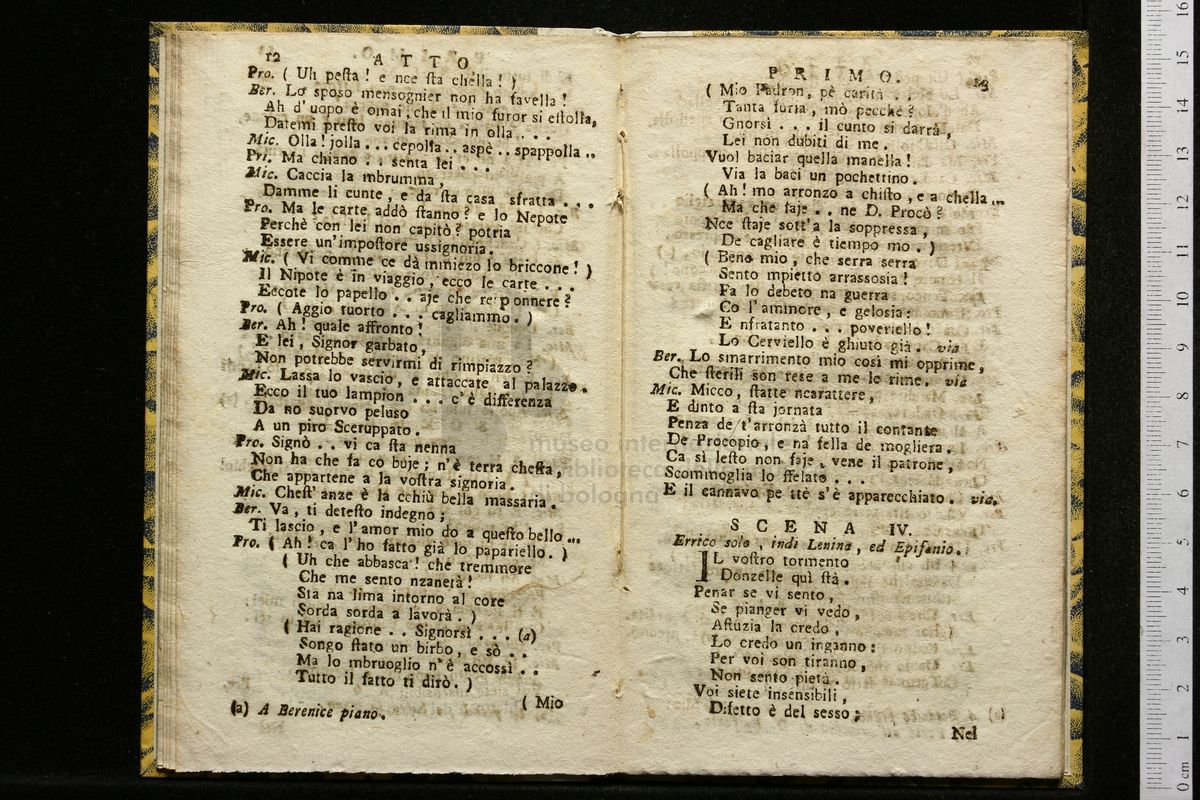 12 ATTO
Pro. ( Uh peſta ! e nce ſta chella ! )
Ber. Lo spoſo mensognier non ha favella !
Ah d'uopo è omai, che il mio furor si eſtolla,
Datemi preſto voi la rima in olla . . .
Mic. Olla ! jolla . . . cepolla . . aspè . . spappolla . .
Pri. Ma chiano : . senta lei . . .
Mic. Caccia la mbrumma,
Damme li cunte, e da ſta casa sfratta . . .
Pro. Ma le carte addò ſtanno ? e lo Nepote
Perchè con lei non capitò ? potria
Essere un'impoſtore ussignoria.
Mic. ( Vi comme ce dà mmiezo lo briccone ! )
Il Nipote è in viaggio, ecco le carte . . .
Eccote lo papello . . aje che responnere ?
Pro. ( Aggio tuorto . . . cagliammo. )
Ber. Ah ! quale affronto !
E lei, Signor garbato,
Non potrebbe servirmi di rimpiazzo ?
Mic. Lassa lo vascio, e attaccate al palazzo.
Ecco il tuo lampion . . . c'è differenza
Da no suorvo peluso
A un piro Sceruppato.
Pro. Signò . . vi ca ſta nenna
Non ha che fa co buje ; n'è terra cheſta,
Che appartene a la voſtra signoria.
Mic. Cheſt' anze è la cchiù bella massaria.
Ber. Va, ti deteſto indegno ;
Ti lascio, e l'amor mio do a queſto bello ...
Pro. ( Ah ! ca l'ho fatto già lo papariello. )
( Uh che abbasca ! che tremmore
Che me sento nzanetà !
Sta na lima intorno al core
Sorda sorda a lavorà. )
( Hai ragione . . Signorsì . . . (a)
Songo ſtato un birbo, e sò . .
Ma lo mbruoglio n'è accossì . .
Tutto il fatto ti dirò. )
( Mio
(a) A Berenice piano.
PRIMO. 13
( Mio Padron, pè carità . .
Tanta furia, mò pecchè ?
Gnorsì . . . il cunto si darrà,
Lei non dubiti di me.
Vuol baciar quella manella !
Via la baci un pochettino.
( Ah ! mo arronzo a chiſto, e a chella ...
Ma che faje . . ne D. Procò ?
Nce ſtaje sott'a la soppressa,
De cagliare è tiempo mo. )
( Bene mio, che serra serra
Sento mpietto arrassosia !
Fa lo debeto na guerra
Co l'ammore, e gelosia :
E nfratanto . . . poveriello !
Lo Cerviello è ghiuto già. via
Ber. Lo smarrimento mio così mi opprime,
Che ſterili son rese a me le rime. via
Mic. Micco, ſtatte ncarattere,
E dinto a ſta jornata
Penza de t'arronzà tutto il contante
De Procopio, e na fella de mogliera.
Ca sì leſto non faje, vene il patrone,
Scommoglia lo ffelato . . .
E il cannavo pe ttè s'è apparecchiato. via.
SCENA IV.
Errico solo, indi Lenina, ed Epifanio.
IL voſtro tormento
Donzelle quì ſtà.
Penar se vi sento,
Se pianger vi vedo,
Aſtuzia la credo,
Lo credo un inganno :
Per voi son tiranno,
Non sento pietà.
Voi siete insensibili,
Difetto è del sesso ;
Nel